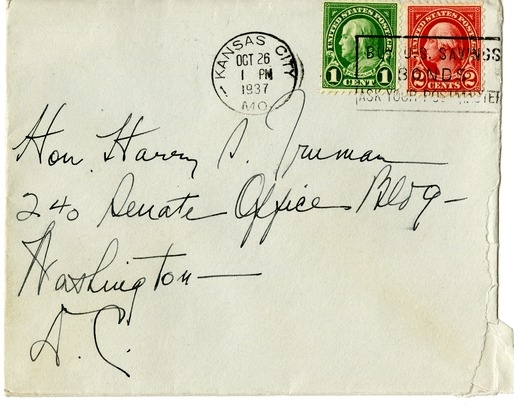 KANSAS CITY
OCT 26
1 PM
1937
MO.
UNITED STATES POSTAGE
1 CENT 1
UNITED STATES POSTAGE
2 CENTS 2
BUY U.S. SAVINGS
BONDS
ASK YOUR POSTMASTER
Hon. Harry S. Truman
240 Senate Office Bldg—
Washington—
D.C.